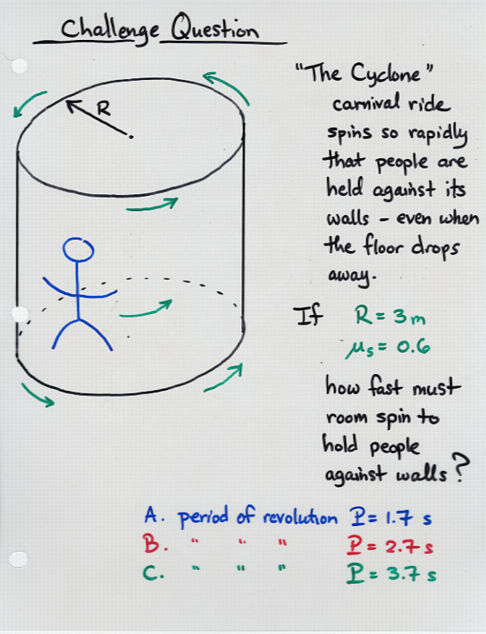 Challenge Question
R
"The Cyclone"
carnival ride
spins so rapidly
that people are
held against its
walls - even when
the floor drops
away.
If R = 3 m
μs = 0.6
how fast must
room spin to
hold people
against walls?
A. period of revolution P = 1.7 s
B. " " " P = 2.7 s
C. " " " P = 3.7 s